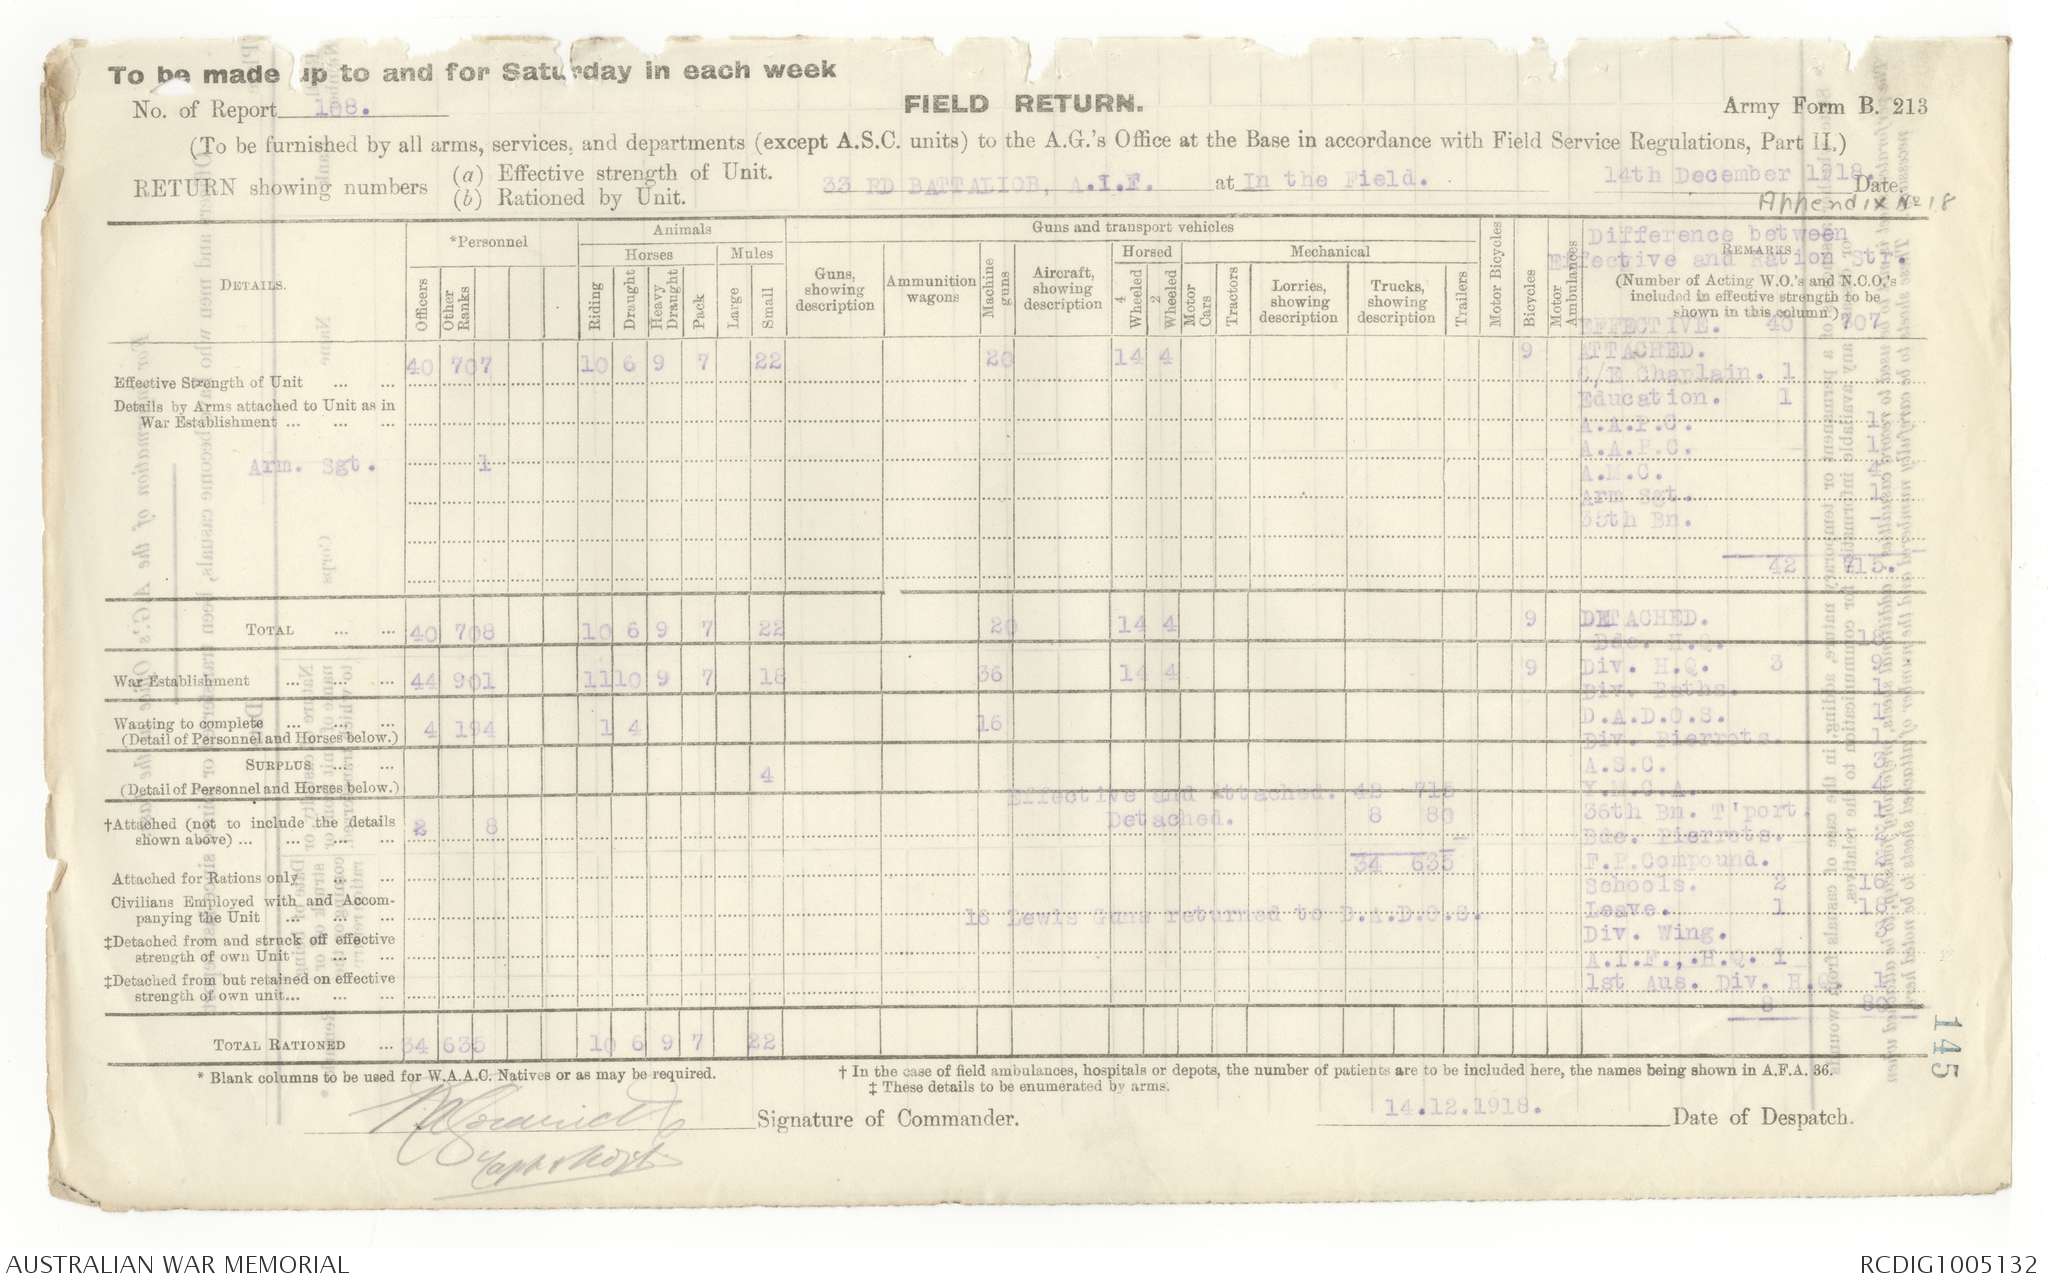 To be made up to and for Saturday in each week
No. of Report 108.
FIELD RETURN.
Army Form B. 213
(To be furnished by all arms, services, and departments (except A.S.C. units) to the A.G.'s Office at the Base in accordance with Field Service Regulations, Part II.)
RETURN showing numbers
(a) Effective strength of Unit.
(b) Rationed by Unit.
33 RD BATTALION, A.I.F. at In the Field.
14th December 1918. Date.
Appendix No 18
DETAILS.
*Personnel
Officers
Other Ranks
Animals
Horses
Riding
Draught
Heavy Draught
Pack
Mules
Large
Small
Guns and transport vehicles
Guns, showing description
Ammunition wagons
Machine guns
Aircraft, showing description
Horsed
4 Wheeled
2 Wheeled
Mechanical
Motor Cars
Tractors
Lorries, showing description
Trucks, showing description
Trailers
Motor Bicycles
Bicycles
Motor Ambulances
REMARKS
(Number of Acting W.O.'s and N.C.O.'s included in effective strength to be shown in this column)
Difference between
Effective and Ration Str.
Effective Strength of Unit ... ... 40 707 10 6 9 7 22 20 14 4 9
Details by Arms attached to Unit as in War Establishment ... ... ...
Arm. Sgt. 1
TOTAL ... ... 40 708 10 6 9 7 22 20 14 4 9
War Establishment ... ... ... 44 901 11 10 9 7 18 36 14 4 9
Wanting to complete ... ... ... 4 194 1 4 16
(Detail of Personnel and Horses below.)
SURPLUS ... ... 4
(Detail of Personnel and Horses below.)
†Attached (not to include the details shown above) ... ... ... ... 2 8
Attached for Rations only ... ...
Civilians Employed with and Accompanying the Unit ... ... ...
‡Detached from and struck off effective strength of own Unit ... ...
‡Detached from but retained on effective strength of own unit... ... ...
TOTAL RATIONED ... 34 635 10 6 9 7 22
Effective and Attached. 42 715
Detached. 8 80
34 635
16 Lewis Guns returned to D.A.D.O.S.
EFFECTIVE. 40 707
ATTACHED.
C/E Chaplain. 1
Education. 1
A.A.P.C. 1
A.A.P.C. 1
A.M.C. 4
Arm Sgt. 1
35th Bn.
42 715.
DETACHED.
Bde. H.Q. 18
Div. H.Q. 3 9
Div. Baths. 1
D.A.D.O.S. 1
Div. Pierrots.
A.S.C.
Y.M.C.A.
36th Bn. T'port.
Bde. Pierrots.
F.P.Compound.
Schools. 2 16
Leave. 1 18
Div. Wing. 3
A.I.F., H.Q. 1
1st Aus. Div. H.Q. 1
8 80
* Blank columns to be used for W.A.A.C. Natives or as may be required.
† In the case of field ambulances, hospitals or depots, the number of patients are to be included here, the names being shown in A.F.A. 36.
‡ These details to be enumerated by arms.
Signature of Commander.
14.12.1918.
Date of Despatch.
145
AUSTRALIAN WAR MEMORIAL
RCDIG1005132